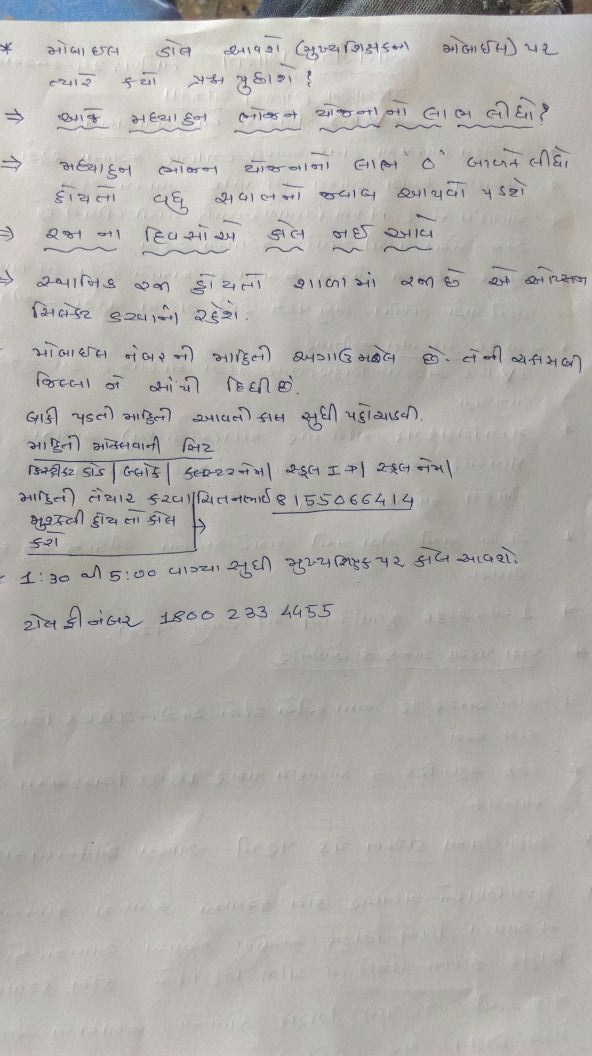 * મોબાઇલ કોલ આવશે (મુખ્યશિક્ષકના મોબાઇલ) પર
ત્યારે કયો પ્રશ્ન પુછાશે?
⇒ આજે મધ્યાહન ભોજન યોજનાનો લાભ લીધો?
⇒ મધ્યાહન ભોજન યોજનાનો લાભ ૦ બાળકે લીધો
હોયતો વધુ સવાલનો જવાબ આપવો પડશે
⇒ રજા ના દિવસોએ કોલ નઈ આવે
⇒ સ્થાનિક રજા હોયતો શાળામાં રજા છે એ ઓપ્સન
સિલેક્ટ કરવાની રહેશે.
મોબાઇલ નંબરની માહિતી અગાઉ છે. તેની
જિલ્લા ને સોંપી દિધી છે.
બાકી પડતી માહિતી આવતી કાલ સુધી પહોંચાડવી.
માહિતી મોકલવાની સિટ
ડિસ્ટ્રીક્ટ કોડ | બ્લોક | કલસ્ટરનેમ | સ્કુલ ID | સ્કુલ નેમ |
માહિતી તૈયાર કરવા ચિતનભાઈ 8155066414
મુશ્કેલી હોય તો કોલ
કરો
* 1:30 થી 5:00 વાગ્યા સુધી મુખ્યશિક્ષક પર કોલ આવશે.
ટોલ ફ્રી નંબર 1800 233 4455